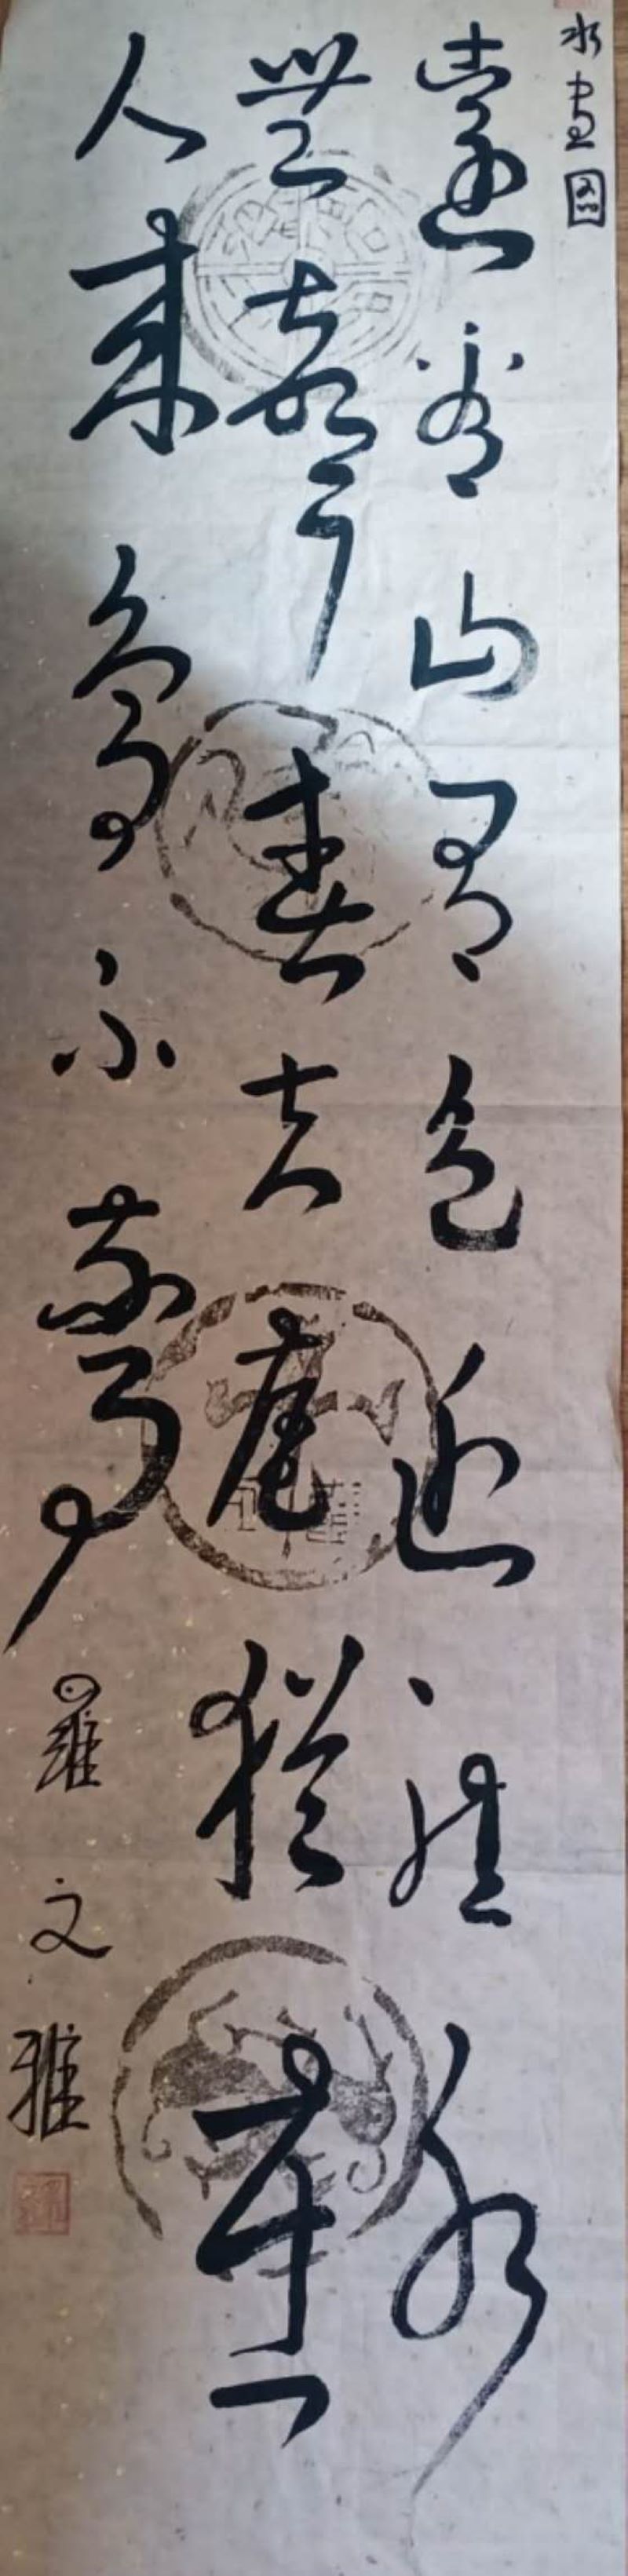 水畫圖
遠看山有色近聽水
無聲春去花猶在
人來鳥不驚
羅文雅